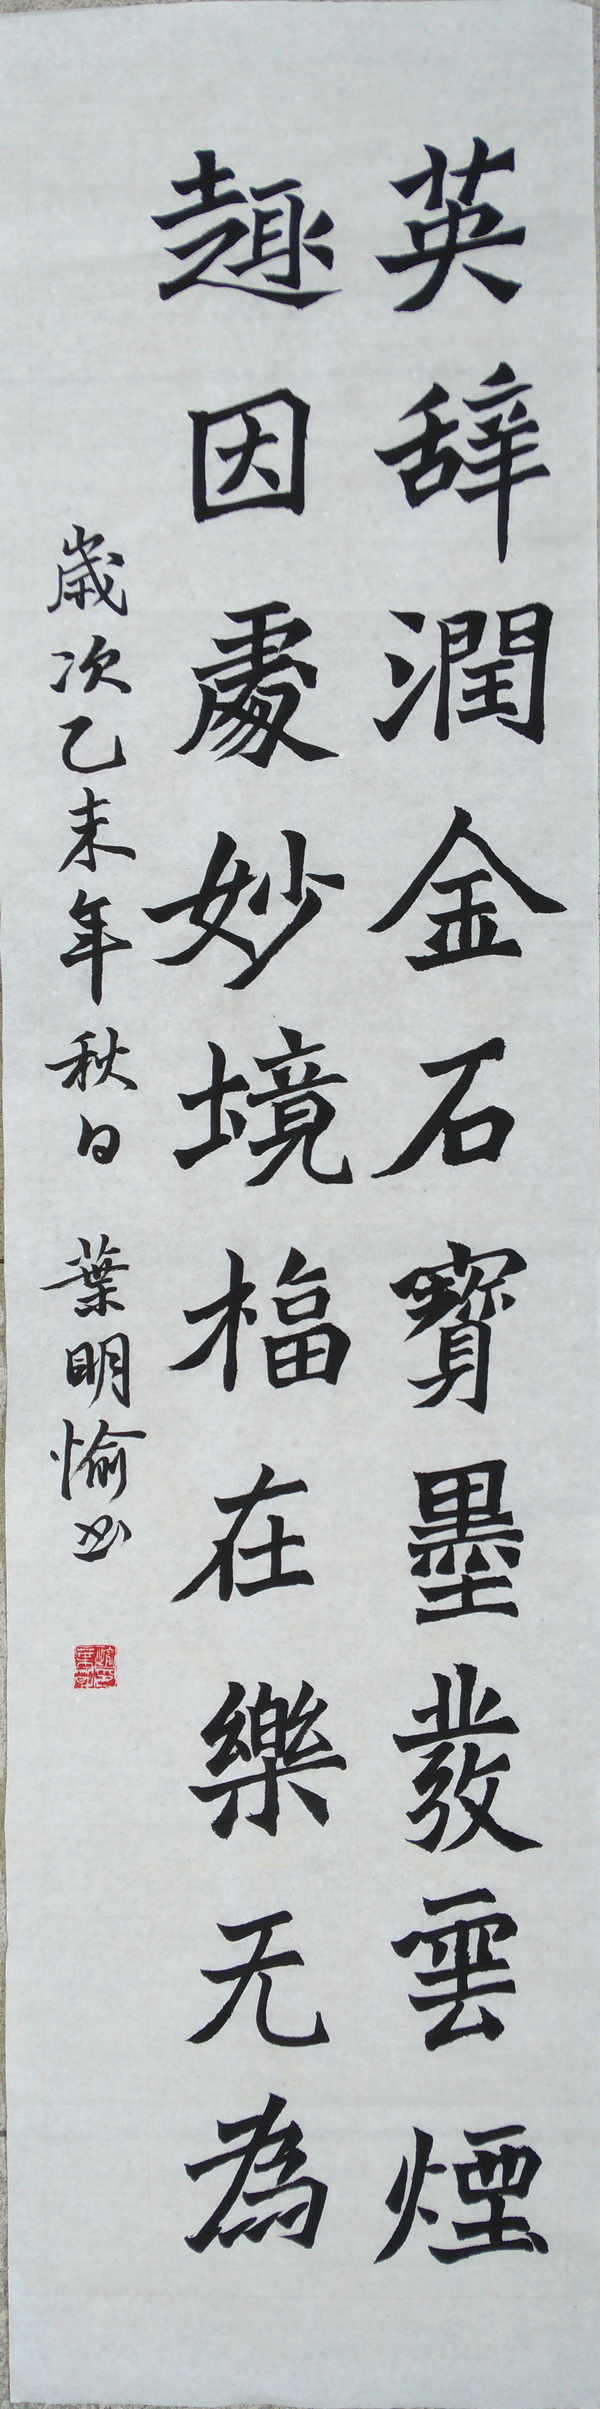 英辞潤金石寳墨發雲煙
趣因處妙境福在樂无為
歲次乙未年秋日 葉明愉书